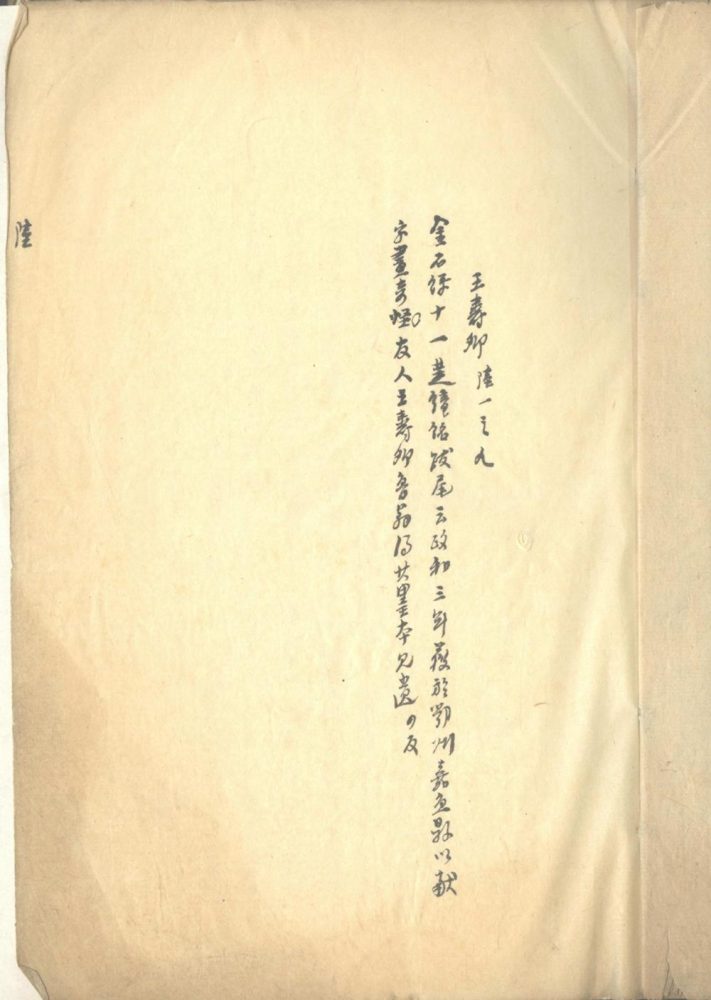 王壽卿 陸一之九
金石錄十一楚鐘銘跋尾云政和三年獲於鄂州嘉魚縣以獻
字畫奇怪。友人王壽卿魯翁得其墨本見遺
陸